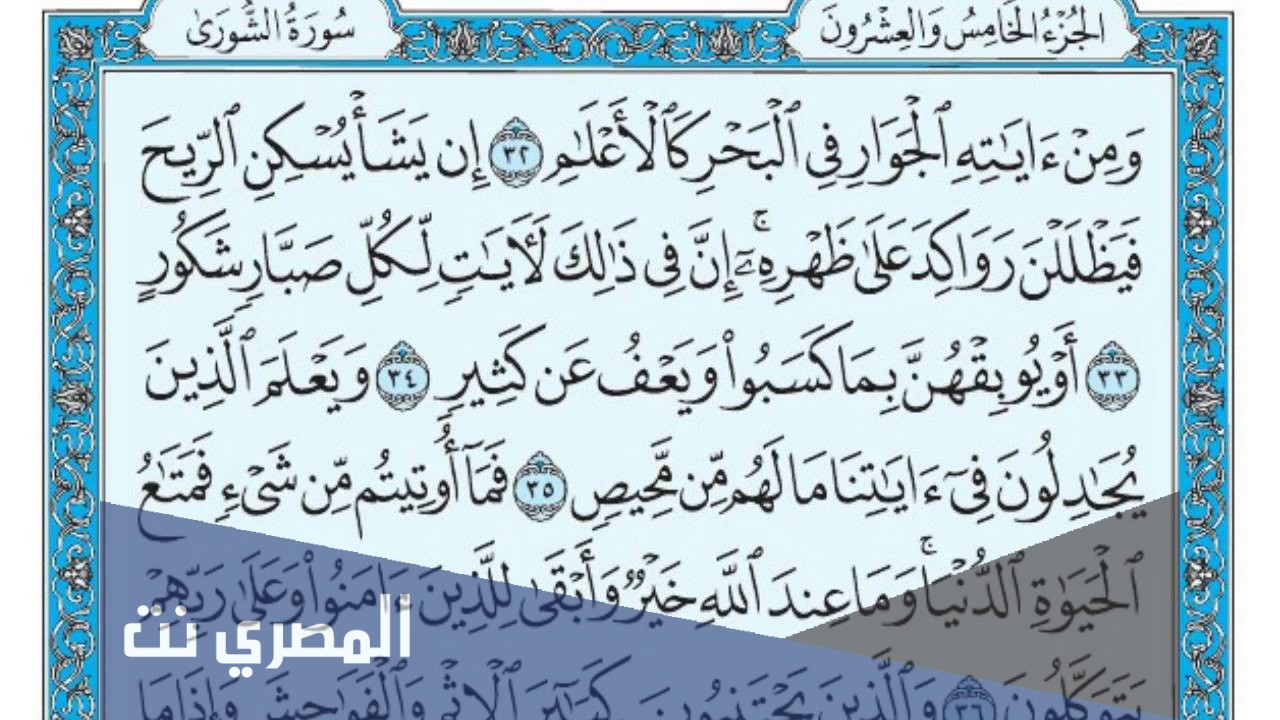 الجُزْءُ الخَامِسُ وَالعِشْرُونَ
سُورَةُ الشُّورَىٰ
وَمِنْ ءَايَٰتِهِ ٱلْجَوَارِ فِى ٱلْبَحْرِ كَٱلْأَعْلَٰمِ ٣٢ إِن يَشَأْ يُسْكِنِ ٱلرِّيحَ
فَيَظْلَلْنَ رَوَاكِدَ عَلَىٰ ظَهْرِهِۦٓ ۚ إِنَّ فِى ذَٰلِكَ لَءَايَٰتٍ لِّكُلِّ صَبَّارٍ شَكُورٍ
٣٣ أَوْ يُوبِقْهُنَّ بِمَا كَسَبُوا۟ وَيَعْفُ عَن كَثِيرٍ ٣٤ وَيَعْلَمَ ٱلَّذِينَ
يُجَٰدِلُونَ فِىٓ ءَايَٰتِنَا مَا لَهُم مِّن مَّحِيصٍ ٣٥ فَمَآ أُوتِيتُم مِّن شَىْءٍ فَمَتَٰعُ
ٱلْحَيَوٰةِ ٱلدُّنْيَا ۚ وَمَا عِندَ ٱللَّهِ خَيْرٌ وَأَبْقَىٰ لِلَّذِينَ ءَامَنُوا۟ وَعَلَىٰ رَبِّهِمْ
المصري نت
يَتَوَكَّلُونَ ٣٦ وَٱلَّذِينَ يَجْتَنِبُونَ كَبَٰٓئِرَ ٱلْإِثْمِ وَٱلْفَوَٰحِشَ وَإِذَا مَا